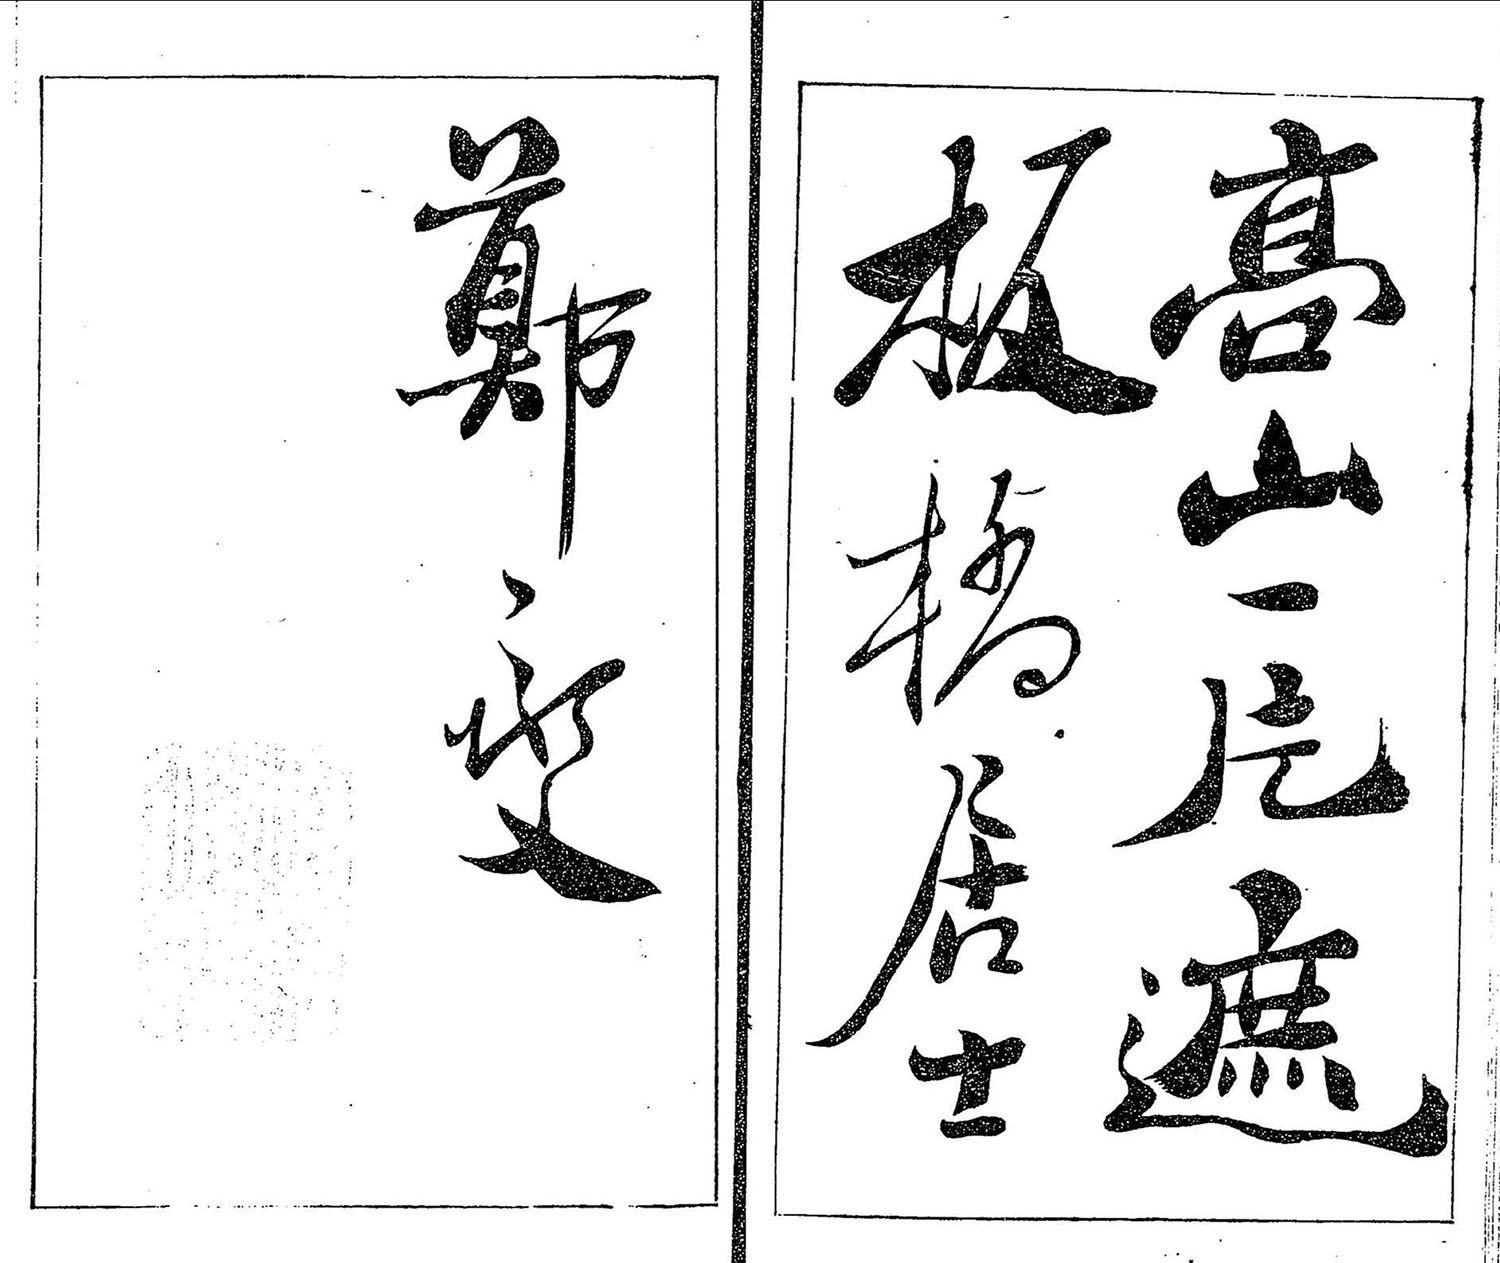 高山一片遮
板橋居士
鄭燮